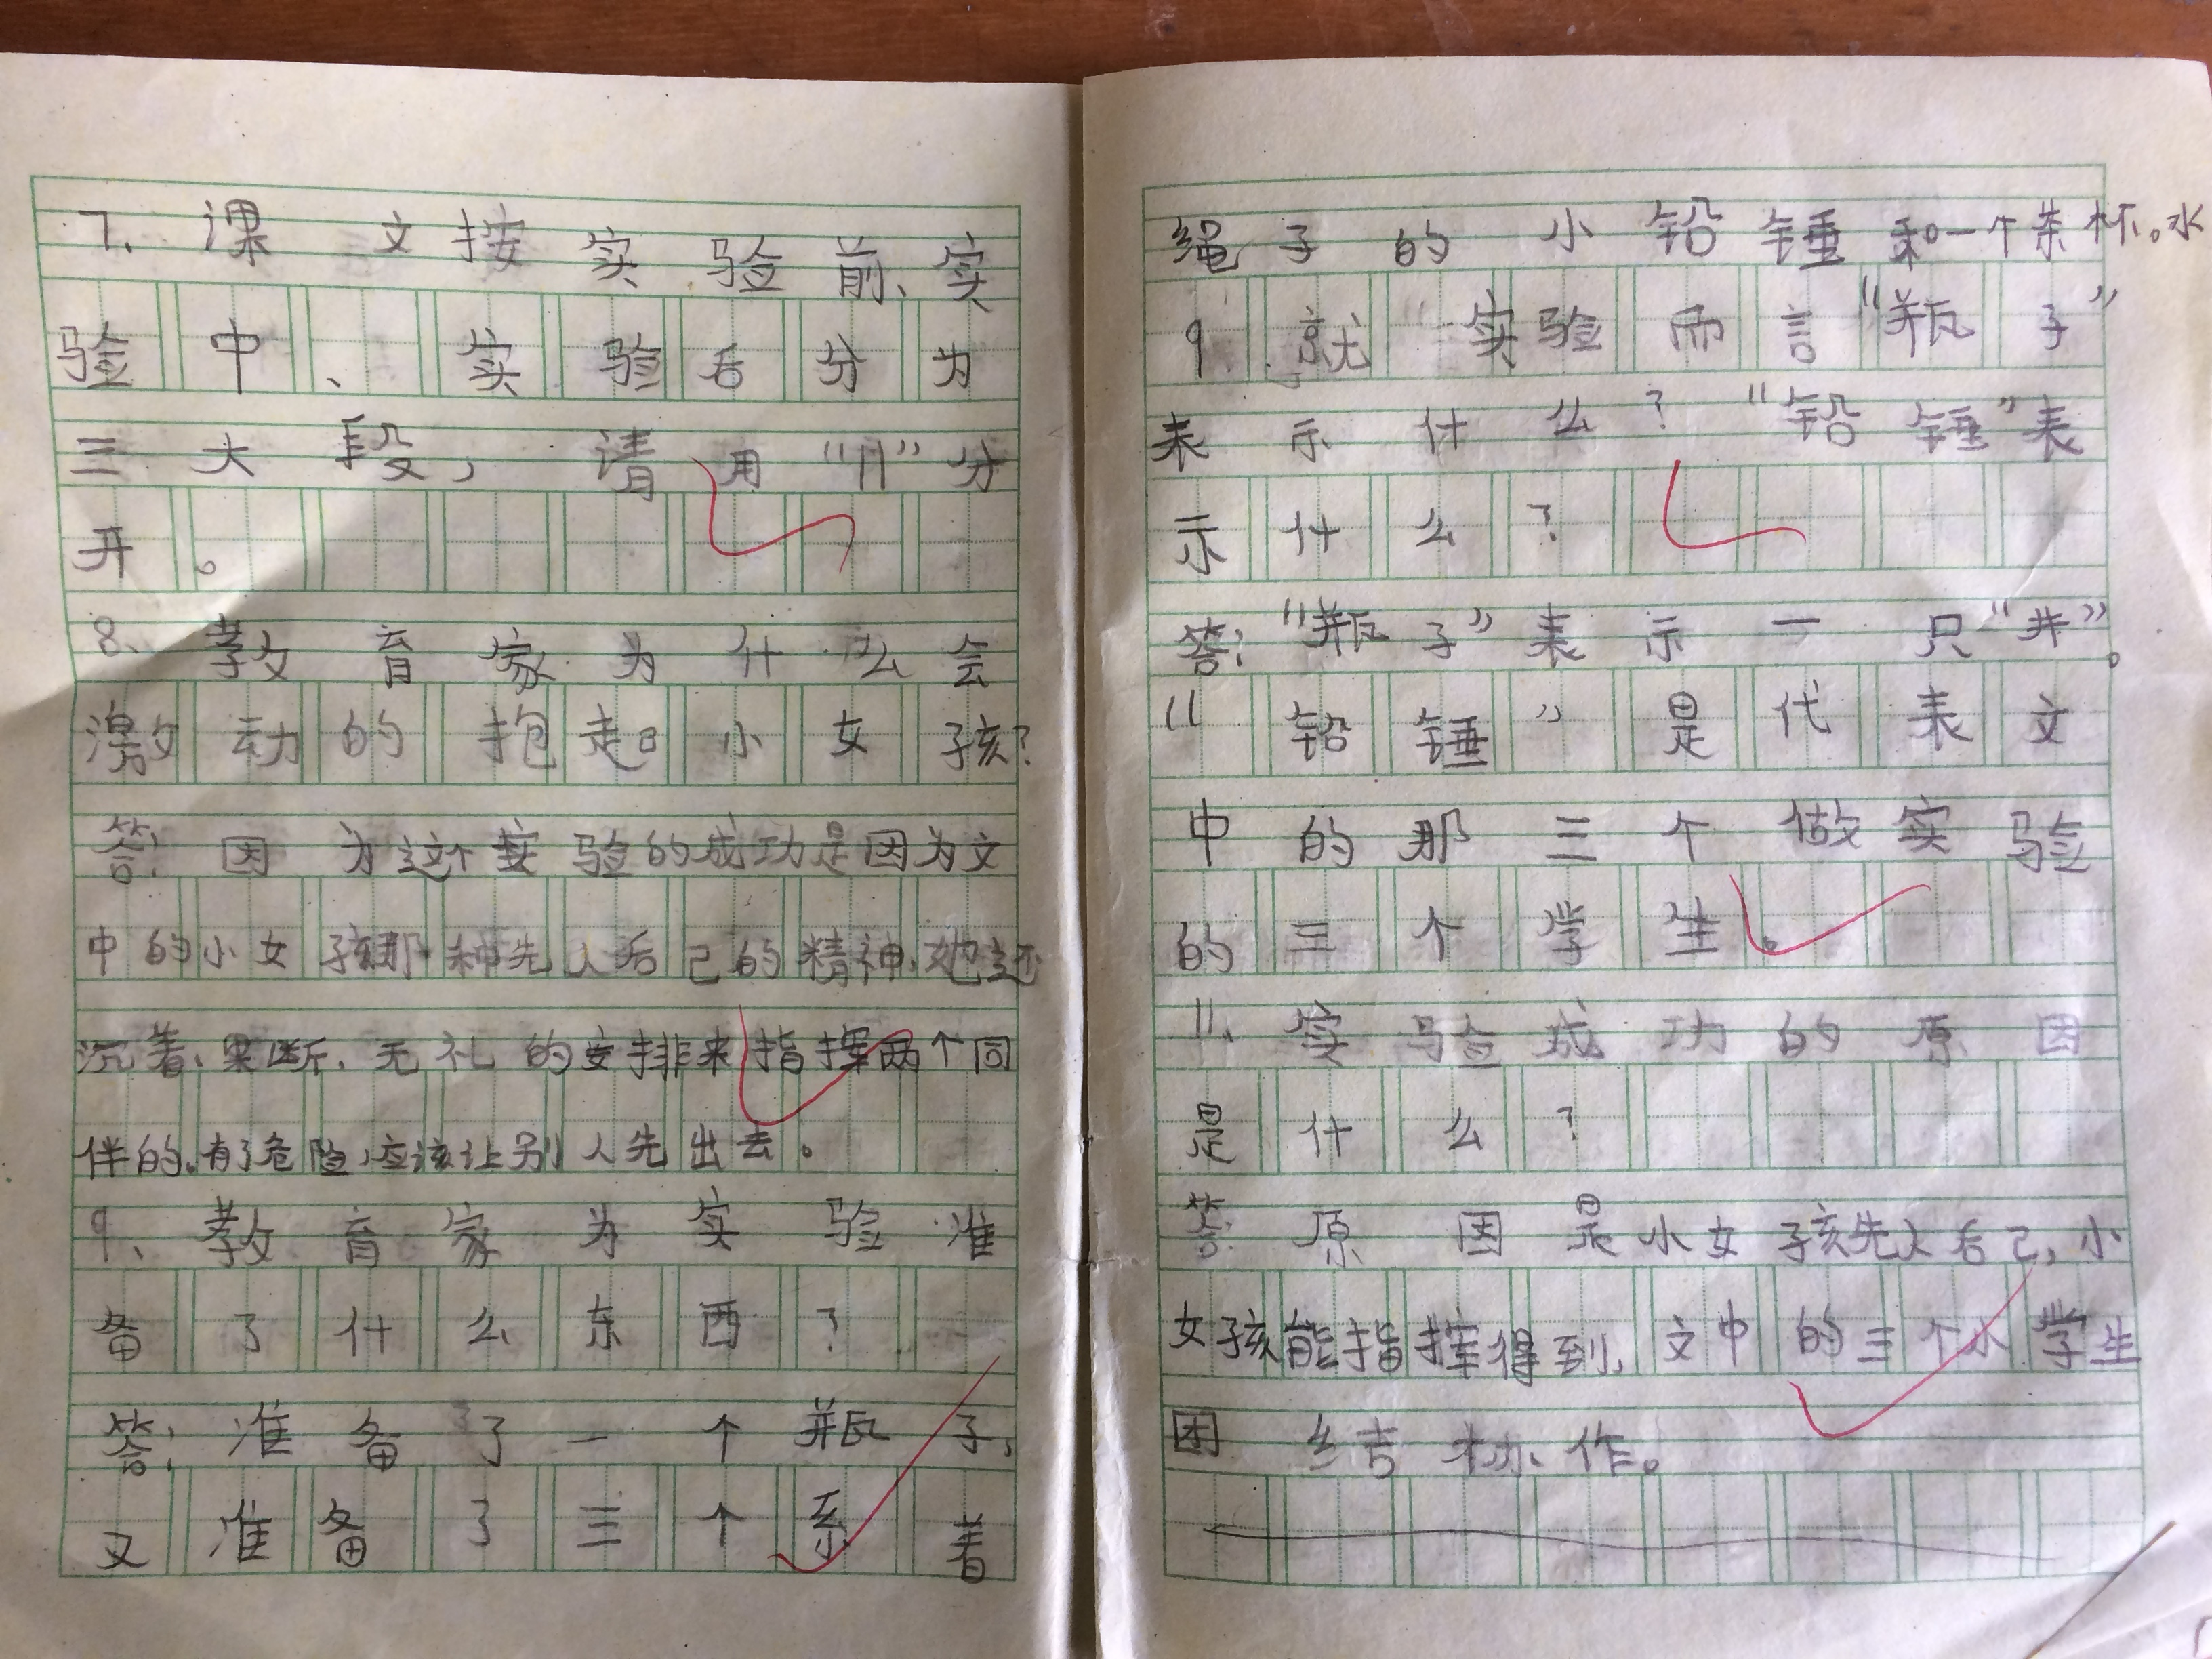 7、课文按实验前、实
验中、实验后分为
三大段，请用“||”分
开。
8、教育家为什么会
激动的抱起小女孩？
答：因为这个实验的成功是因为文
中的小女孩那种先人后己的精神，她还
沉着、果断、无礼的安排来指挥两个同
伴的。有了危险，应该让别人先出去。
9、教育家为实验准
备了什么东西？
答：准备了一个瓶子，
又准备了三个系着
绳子的小铅锤和一个茶杯。水
9 就实验而言“瓶子”
表示什么？“铅锤”表
示什么？
答：“瓶子”表示一只“井”。
“铅锤”是代表文
中的那三个做实验
的三个学生。
11、实验成功的原因
是什么？
答：原因是小女孩先人后己，小
女孩能指挥得到，文中的三个小学生
团结协作。